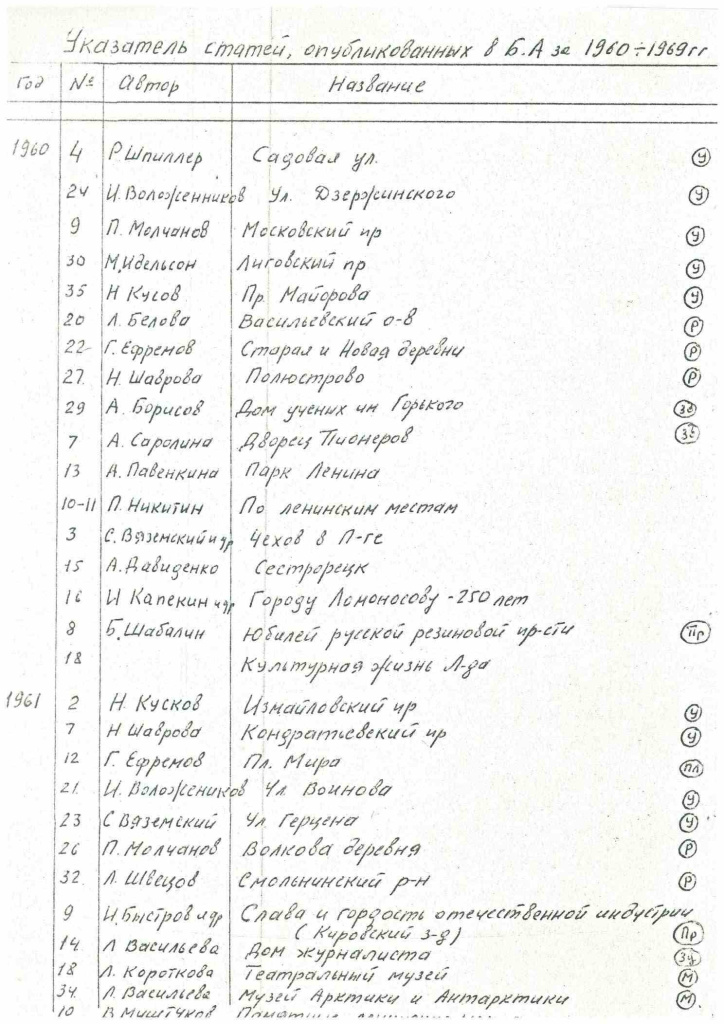 Указатель статей, опубликованных в Б.А за 1960÷1969гг
Год № Автор Название
1960 4 Р.Шпиллер Садовая ул. У
24 И.Воложенников Ул. Дзержинского У
9 П. Молчанов Московский пр У
30 М.Идельсон Лиговский пр У
35 Н Кусов Пр. Майорова У
20 Л. Белова Васильевский о-в Р
22 Г. Ефремов Старая и Новая деревни Р
27 Н. Шаврова Полюстрово Р
29 А. Борисов Дом ученых им Горького Зд
7 А. Саролина Дворец Пионеров Зд
13 А. Павенкина Парк Ленина
10-11 П. Никитин По ленинским местам
3 С. Вяземский и др Чехов в П-ге
15 А. Давиденко Сестрорецк
16 И Капекин и др Городу Ломоносову - 250 лет
8 Б. Шабалин Юбилей русской резиновой пр-сти Пр
18 Культурная жизнь Л-да
1961 2 Н. Кусков Измайловский пр У
7 Н Шаврова Кондратьевский пр У
12 Г. Ефремов Пл. Мира пл
21 И. Воложеников Ул Воинова У
23 С Вяземский Ул Герцена У
26 П. Молчанов Волкова деревня Р
32 Л. Швецов Смольнинский р-н Р
9 И. Быстров и др Слава и гордость отечественной индустрии
(Кировский з-д) Пр
14 Л Васильева Дом журналиста Зд
18 Л. Короткова Театральный музей М
34 Л. Васильева Музей Арктики и Антарктики М
10 В Миштуков